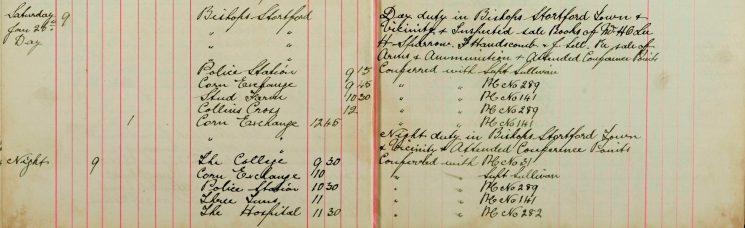 Saturday 9 Bishops Stortford Day duty in Bishops Stortford Town &
Jan 28th Vicinity & Inspected sale Books of Mr H C Lee
Day H Sparrow. J Handscomb & J. Sell. Re sale of
Arms & Ammunition & Attended Conference Points
Police Station 9 15 Conferred with Supt Sullivan
Corn Exchange 9 45 " " PC No 289
Stud Farm 10 30 " " PC No 141
Collins Cross 12 " " PC No 289
1 Corn Exchange 12 45 " " PC No 141
" " Night duty in Bishops Stortford Town
& Vicinity & Attended Conference Points
Night 9 The College 9 30 Conferred with PC No 31
Corn Exchange 10 " " Supt Sullivan
Police Station 10 30 " " PC No 289
Three Tuns 11 " " PC No 141
The Hospital 11 30 " " PC No 282